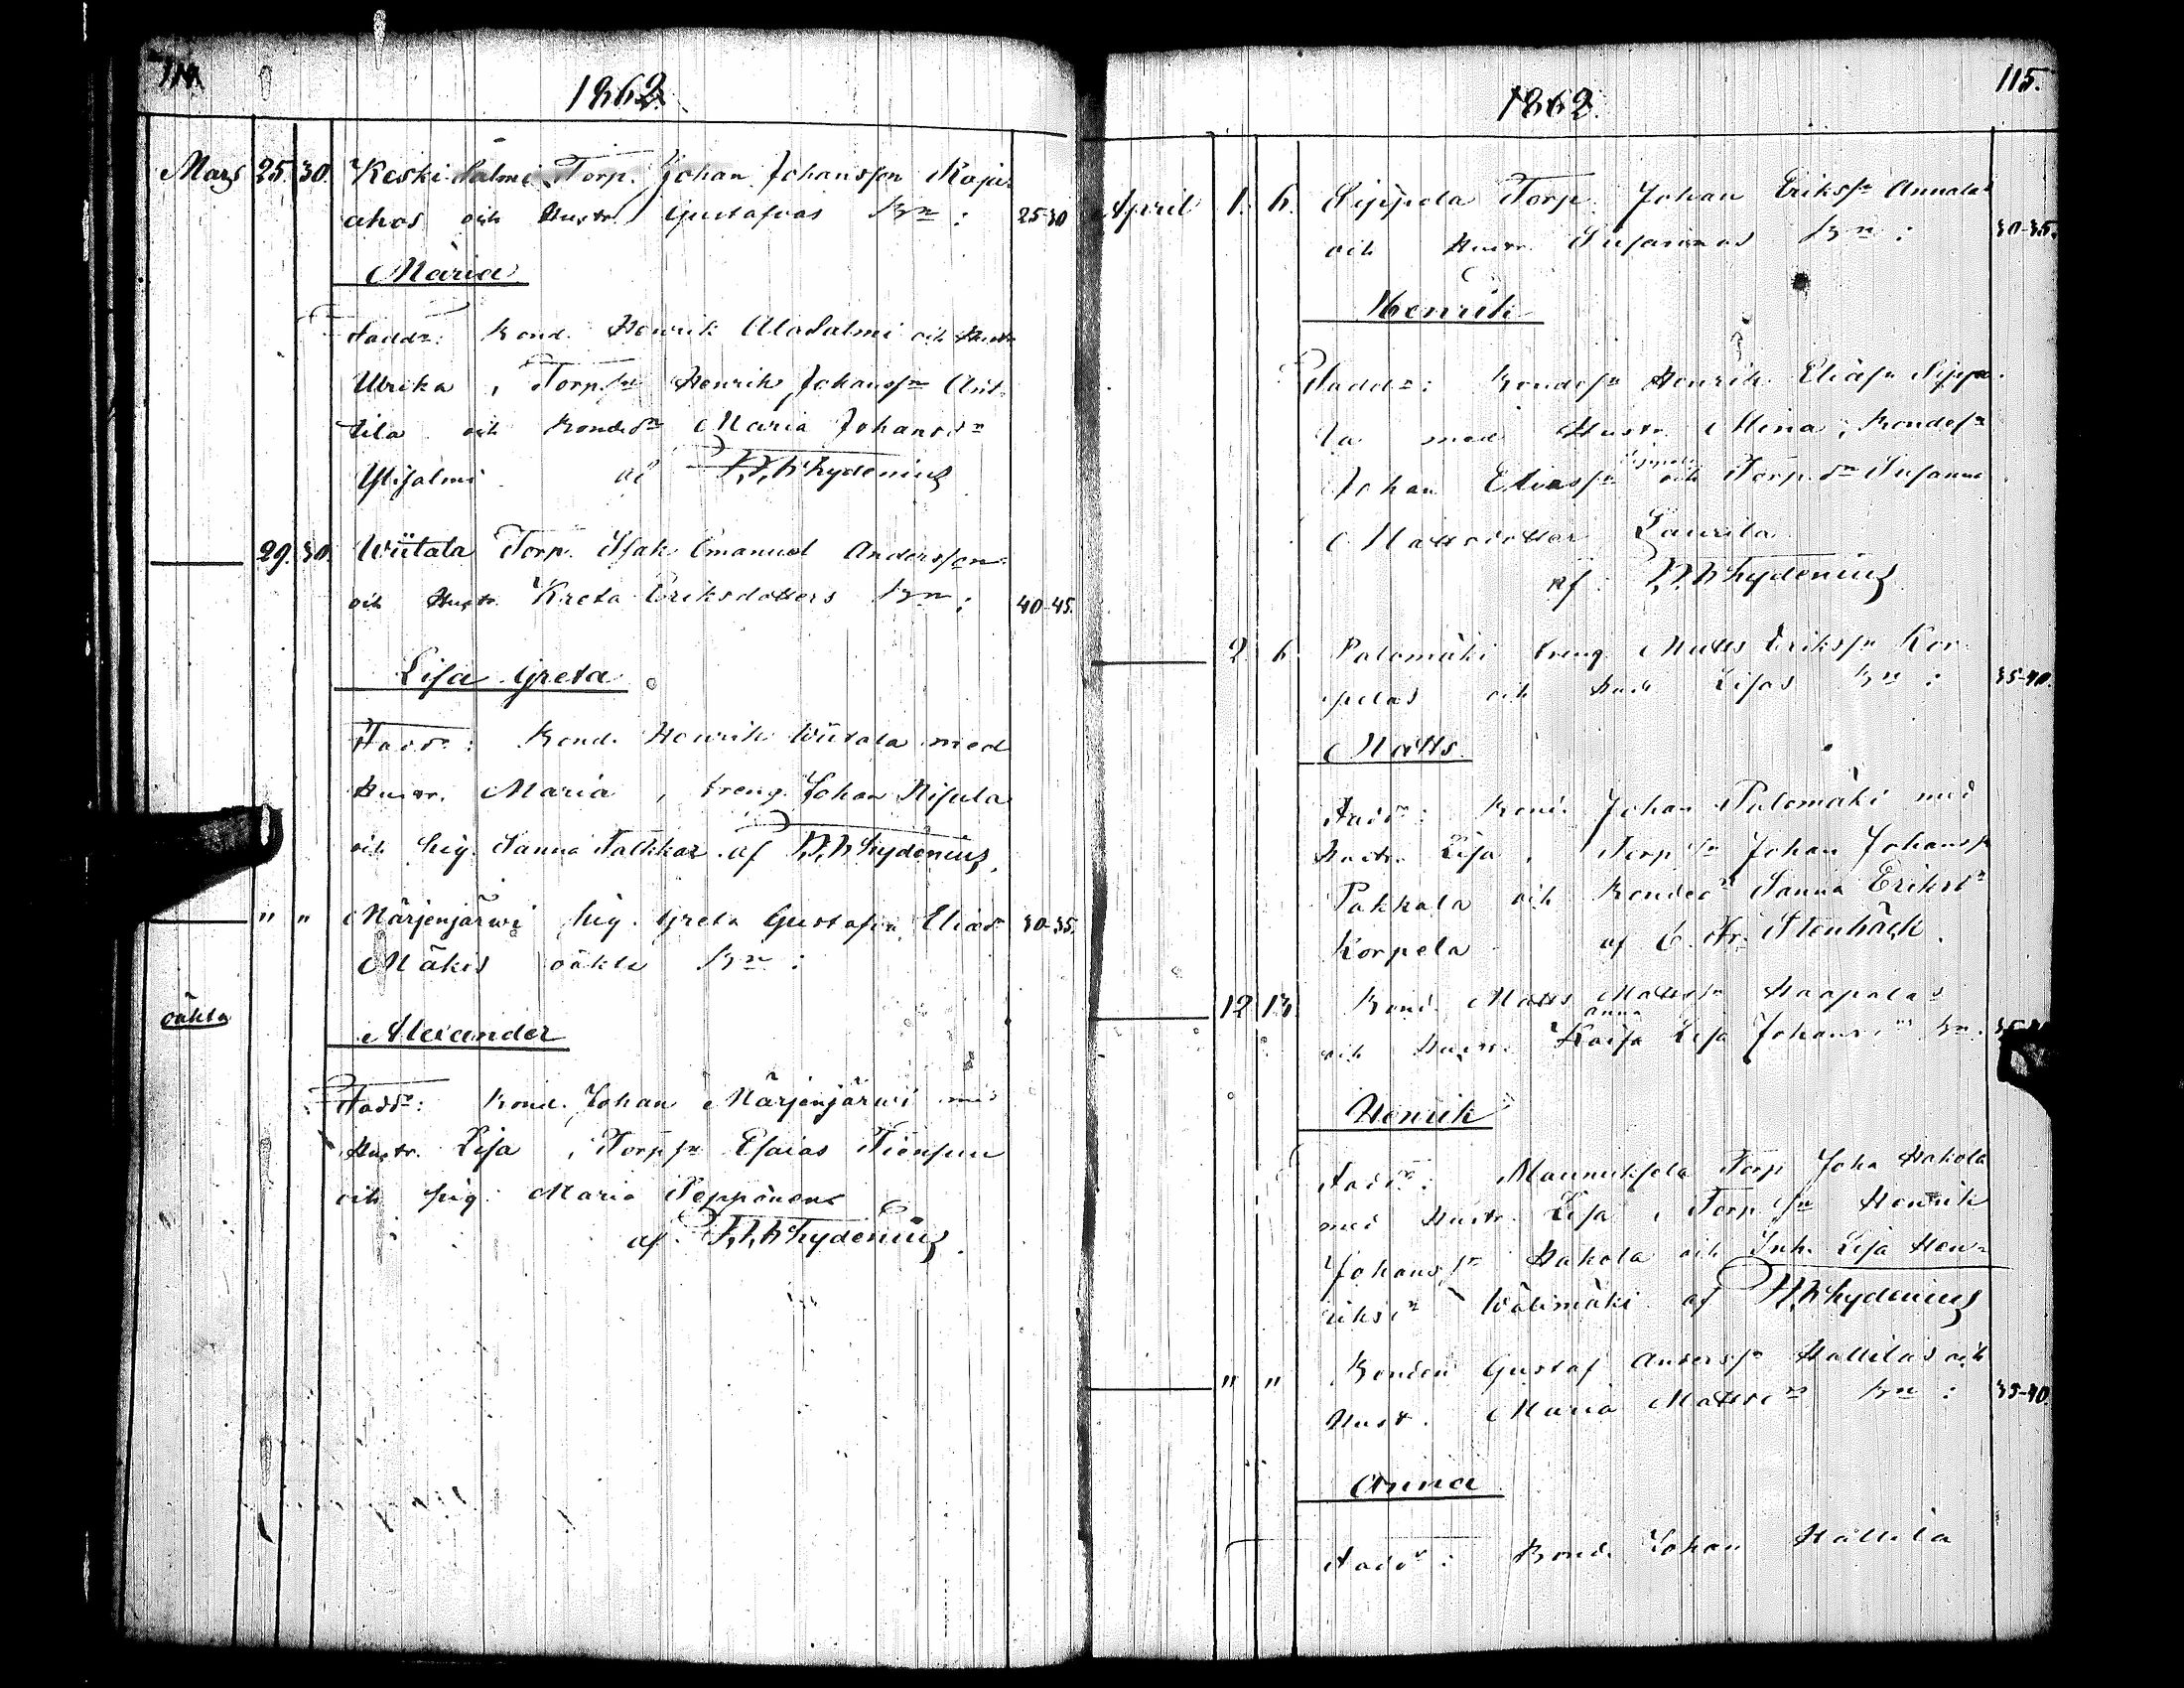 114.
1862.
Mars 25. 30. Keski Salmi Torp. Johan Johansson Koja-
ahos och Hustr. Gustafvas Bn: 25-30
Maria
Faddr: Bond. Henrik AlaSalmi och Hustr
Ulrika, Torp.sn Henrik Johanssn Ant-
tila och Bondedr Maria Johansdr
Ylisalmi af Lydenius
29. 30. Wiitala Torp. Isak Emanuel Andersson
och Hustr. Kreta Eriksdotters Bn: 40-45.
Lisa Greta
Faddr: Bond. Henrik Wiitala med
Hustr. Maria, Dreng. Johan Nisula
och Pig. Sanna af Lydenius.
" " Märjenjärwi Pig. Greta Gustafva Eliasdr 30-35.
Mäkis oäkta Bn:
oäkta
Alexander
Faddr: Bond. Johan Märjenjärwi med
Hustr. Lisa, Torpsn Esaias Tiensuu
och Pig. Maria Seppänens
af Lydenius.
115.
1862.
April 1. 6. Sippola Torp. Johan Erikssn Annalas
och Hustr. Susannas Bn: 30-35.
Henrik
Faddr: Bondesn Henrik Eliassn Sippo-
la med Hustr. Mina, Bondesn
Johan Eliassn Sippola och Torp.dr Susanna
Mattsdotter Laurila
af: Lydenius
2. 6. Palomäki Dreng. Matts Erikssn Kor-
pelas och Hustr Lisas Bn: 35-40.
Matts
Faddr: Bond. Johan Palomäki med
Hustr. Lisa, Torpsn Johan Johanssn
Pakkala och Bondedr Sanna Eriksdr
Korpela af C. Fr. Stenbäck.
12 13 Bond. Matts Mattssn Haapalas
och Hustr. Kaisa Anna Lisa Johansdrs Bn.
Henrik
Faddr: Mannikfela Torp Joha Hakola
med Hustr. Lisa, Torp.sn Henrik
Johanssn Hakola och Inh. Lisa Hen-
riksdr Wälimäki af Lydenius
" " Bonden Gustaf Anderssn Hallilas och
Hustr. Maria Mattsdrs Bn: 35-40.
Anna
Faddr: Bond. Johan Hallila